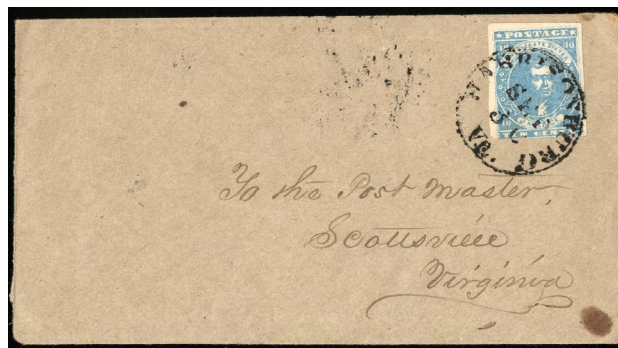 ★ POSTAGE ★
10 10
10 10
TEN CENTS
HARRISONBURG VA.
To the Post Master,
Scottsville
Virginia